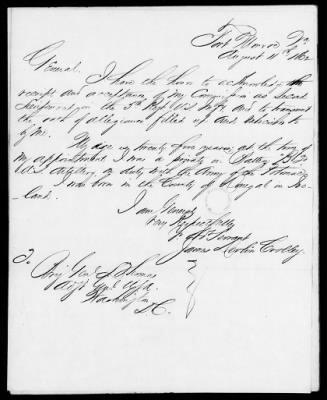 Fort Monroe Va
August 11th 1862
General,
I have the honor to acknowledge the
receipt and acceptance of my Commission as Second
Lieutenant in the 5th Regt U.S. Infty and to transmit
the oath of allegiance filled up and subscribed to
by me.
My age is twenty five years; at the time of
my appointment I was a private in Battery
U.S. Artillery on duty with the Army of the Potomac
I was born in the County of Donegal in Ire-
land.
I am General
Very Respectfully
Your Obt Servant
James
To
Brig. Genl L. Thomas
Adjt Genl U.S.A.
Washington
D.C.